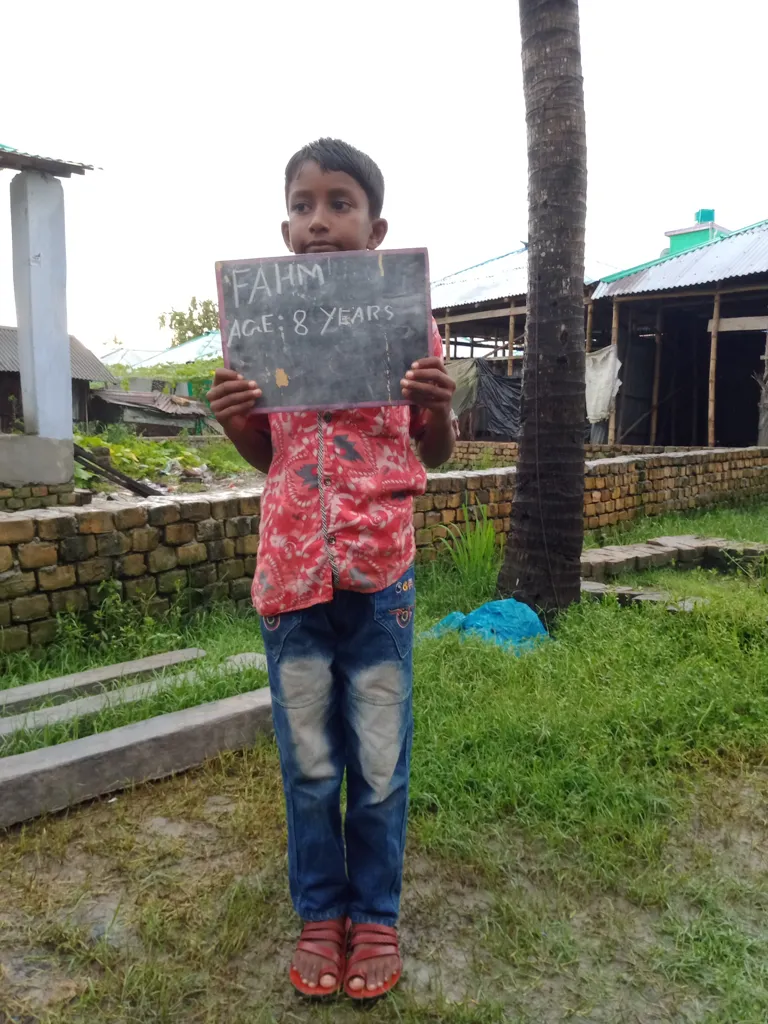 FAHM
AGE: 8 YEARS